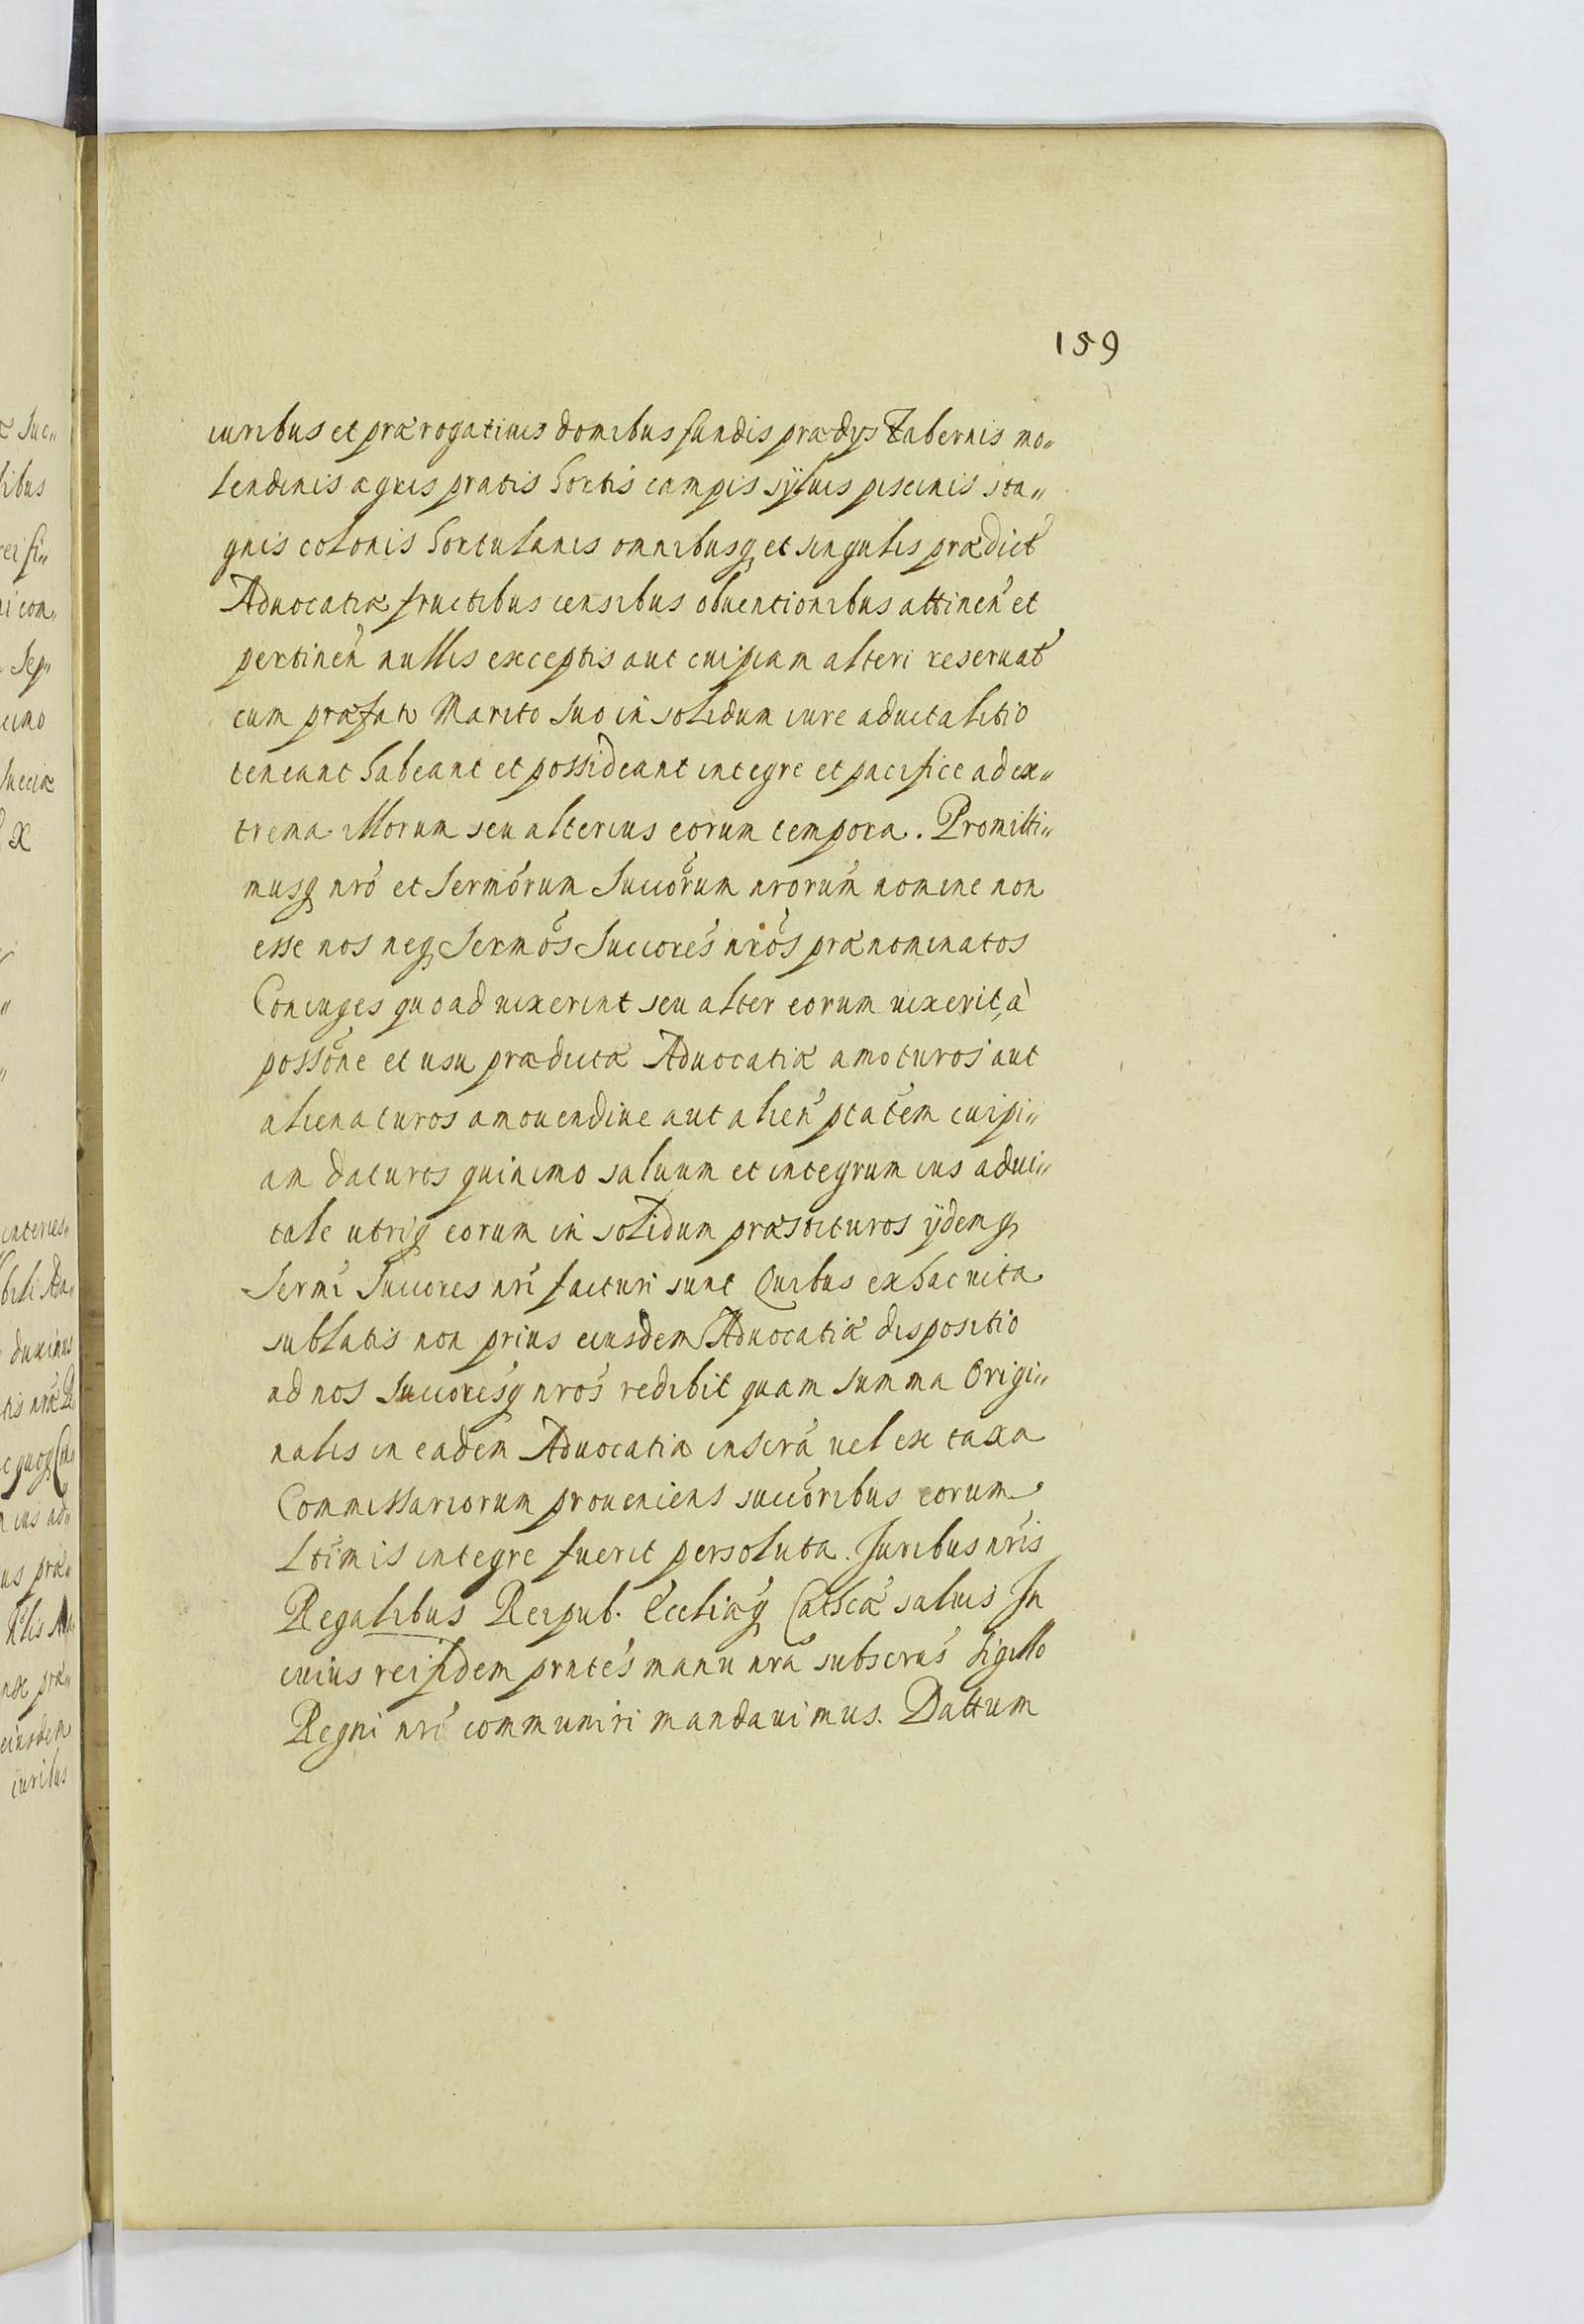 159
iuribus et prærogatiuis domibus fundis prædys Tabernis mo„
lendinis agris pratis hortis campis syluis piscinis sta„
gnis colonis hortulanis omnibusq et singulis prædict
Aduocatiæ fructibus censibus obuentionibus attinen et
pertinen nullis exceptis aut cuipiam alteri reseruat
cum præfato Marito suo in solidum iure aduitalitio
teneant habeant et possideant integre et pacifice ad ex„
trema illorum seu alterius eorum tempora. Promitti„
musq nrò et Sermórum Succórum nrorum nomine non
esse nos neq Sermós Succores nrós prænominatos
Coniuges quoad uixerint seu alter eorum uixerit, à
possóne et usu prædictæ Aduocatiæ amoturos aut
alienaturos amouendiue aut alien ptatem cuipi„
am daturos quinimo saluum et integrum ius adui„
tale utriq eorum in solidum præstituros ÿdemq
Sermi Succores nri facturi sunt Quibus ex hac uita
sublatis non prius eiusdem Aduocatiæ dispositio
ad nos Succoresq nros redibit quam summa Origi„
nalis in eadem Aduocatia inscra uel ex taxa
Commissariorum proueniens succoribus eorum
ltimis integre fuerit persoluta. Iuribus nris
Regalibus Reipub. Ecclæq Cathcæ saluis In
cuius rei fidem prntes manu nra subscras sigillo
Regni nri communiri mandauimus. Dattum